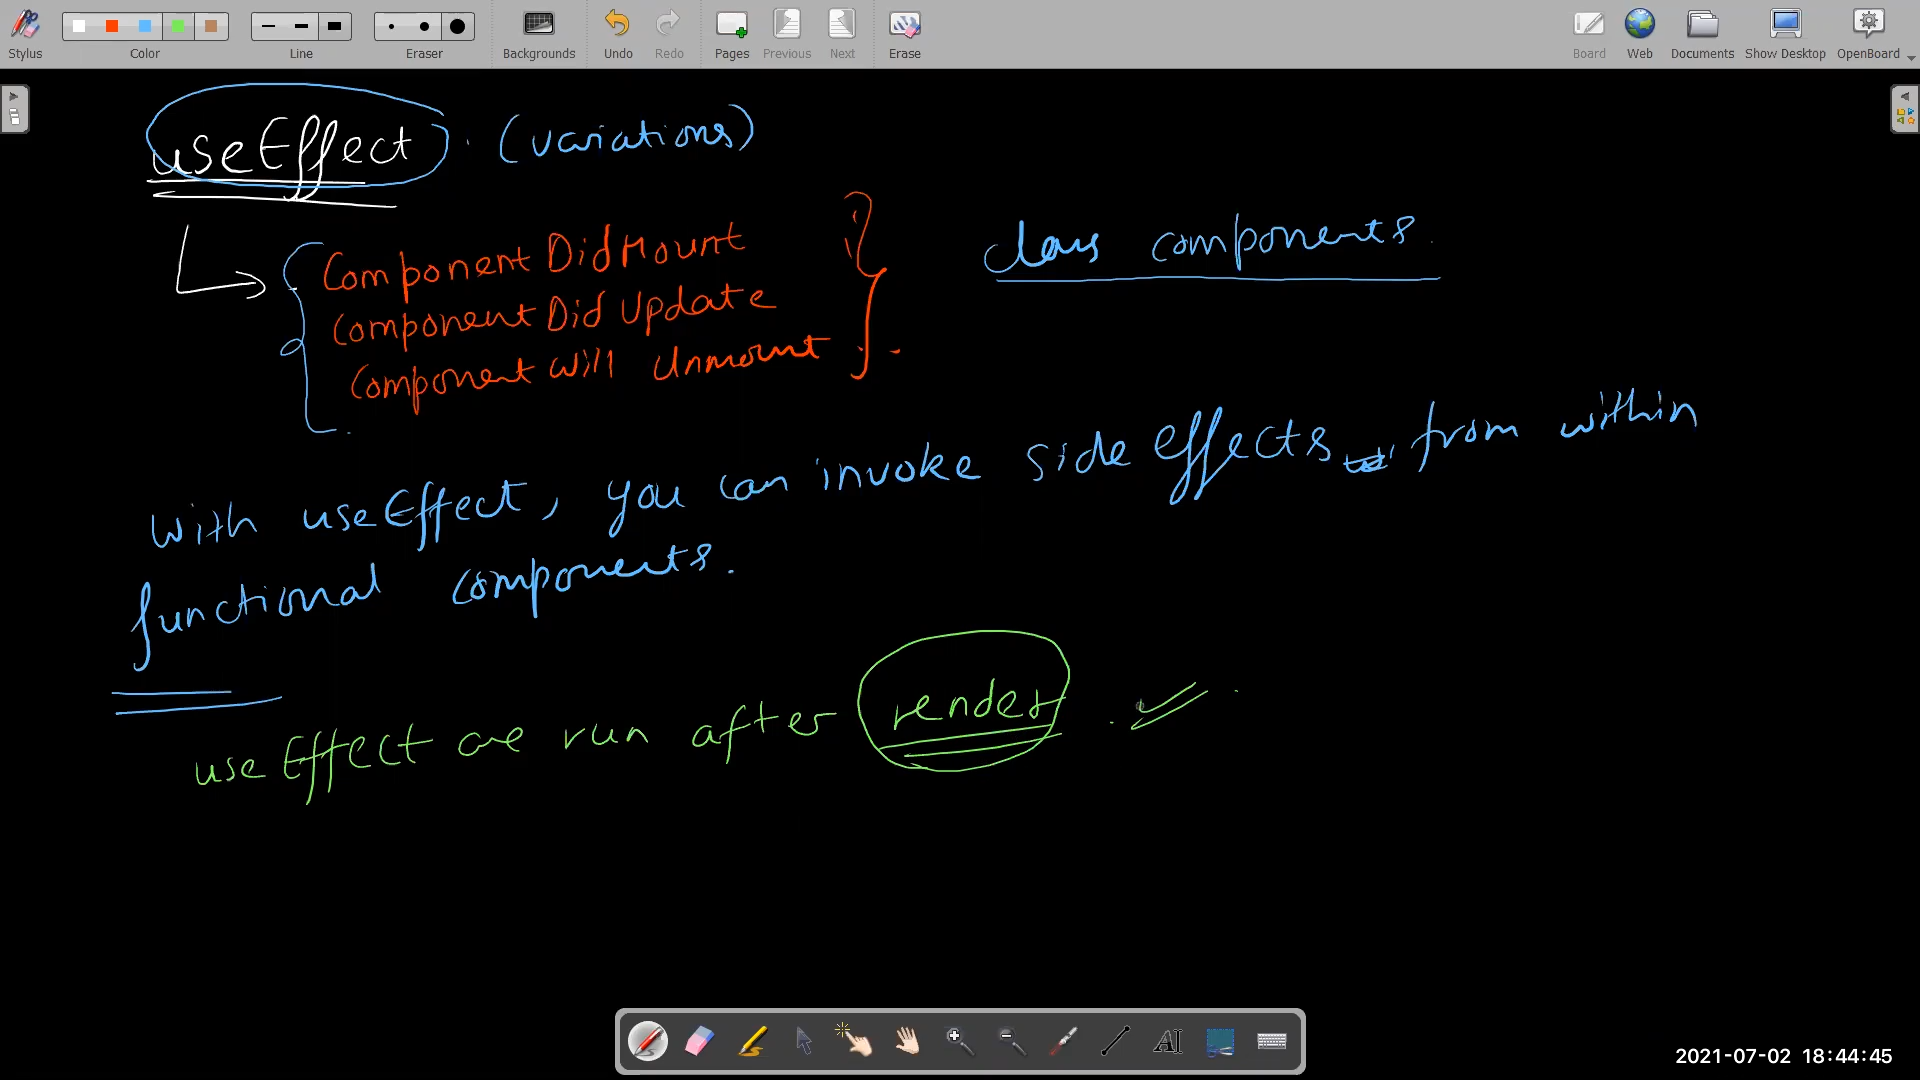 Stylus
Color
Line
Eraser
Backgrounds
Undo
Redo
Pages
Previous
Next
Erase
Board
Web
Documents
Show Desktop
OpenBoard
useEffect. (variations)
Component DidMount
Component Did Update
Component Will Unmount
class components.
With useEffect, you can invoke side effects from within
functional components.
useEffect are run after render.
2021-07-02 18:44:45